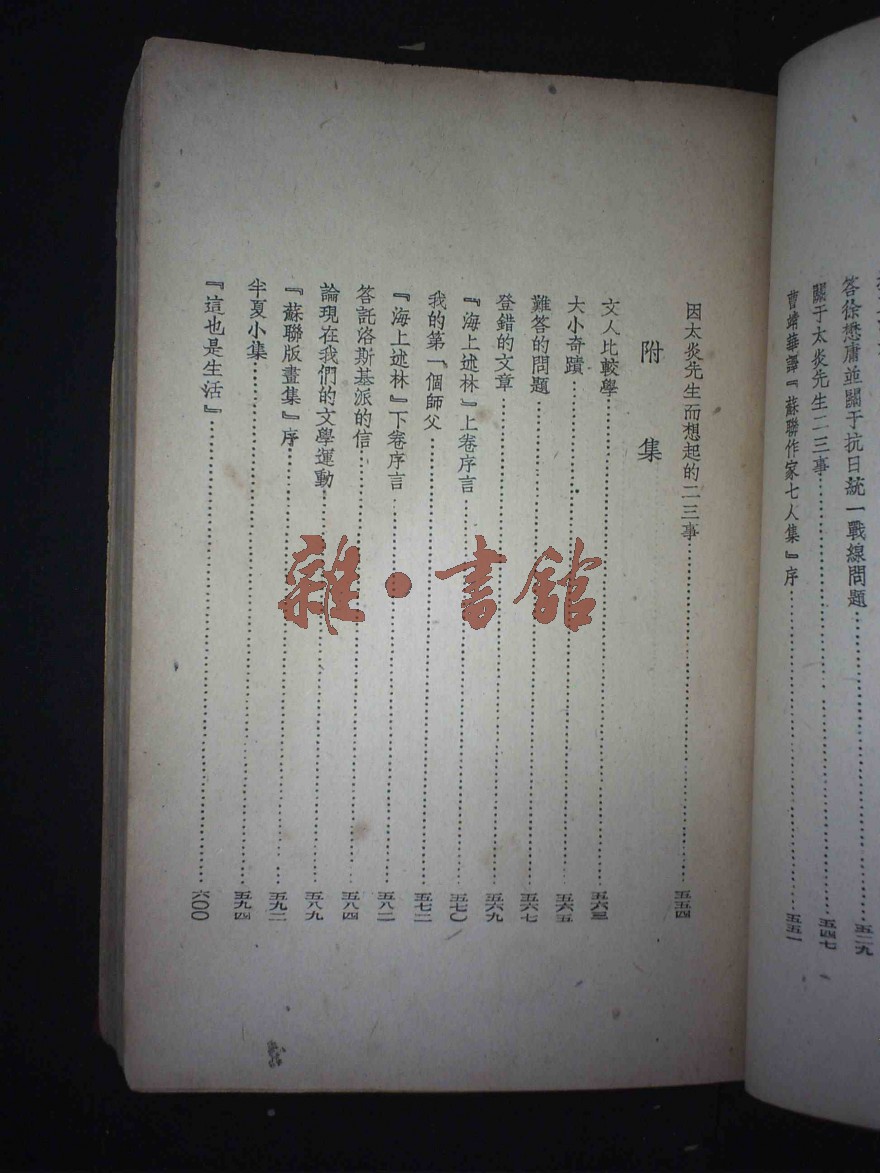 答徐懋庸並關于抗日統一戰線問題……五二九
關于太炎先生二三事……五四七
曹靖華譯『蘇聯作家七人集』序……五五一
因太炎先生而想起的二三事……五五四
附集
文人比較學……五六三
大小奇蹟……五六五
難答的問題……五六七
登錯的文章……五六九
『海上述林』上卷序言……五七〇
我的第一個師父……五七二
『海上述林』下卷序言……五八二
答託洛斯基派的信……五八四
論現在我們的文學運動……五八九
『蘇聯版畫集』序……五九二
半夏小集……五九四
『這也是生活』……六〇〇
雜·書館